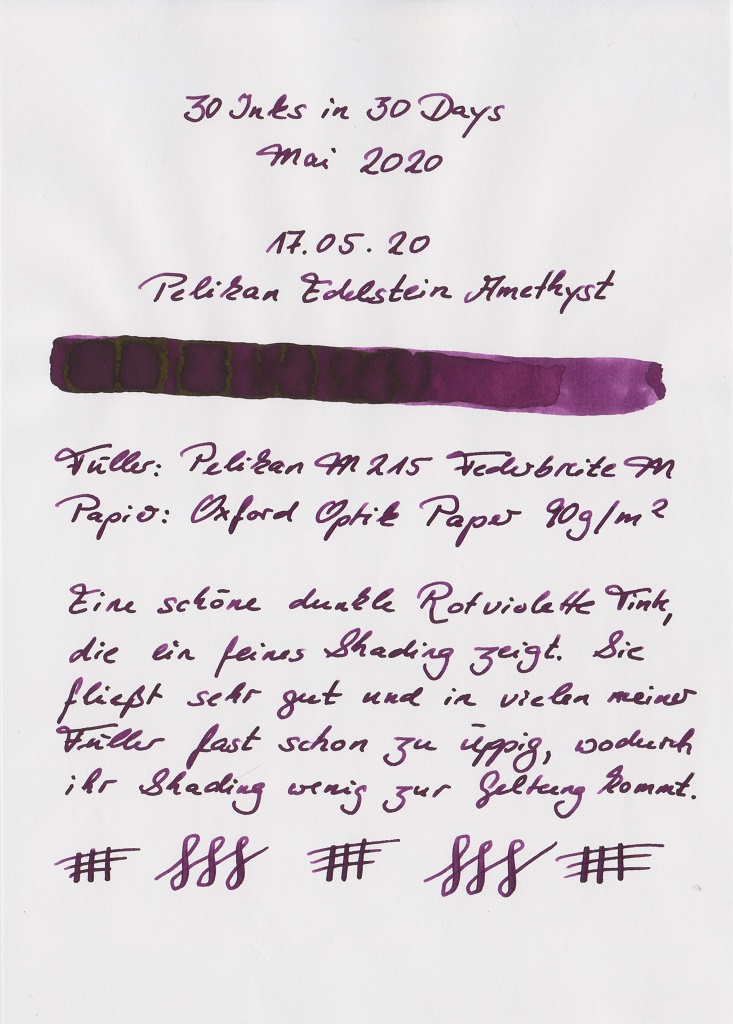 30 Inks in 30 Days
Mai 2020
17.05.20
Pelikan Edelstein Amethyst
Füller: Pelikan M215 Federbreite M
Papier: Oxford Optik Paper 90g/m²
Eine schöne dunkle Rotviolette Tinte,
die ein feines Shading zeigt. Sie
fließt sehr gut und in vielen meiner
Füller fast schon zu üppig, wodurch
ihr Shading wenig zur Geltung kommt.